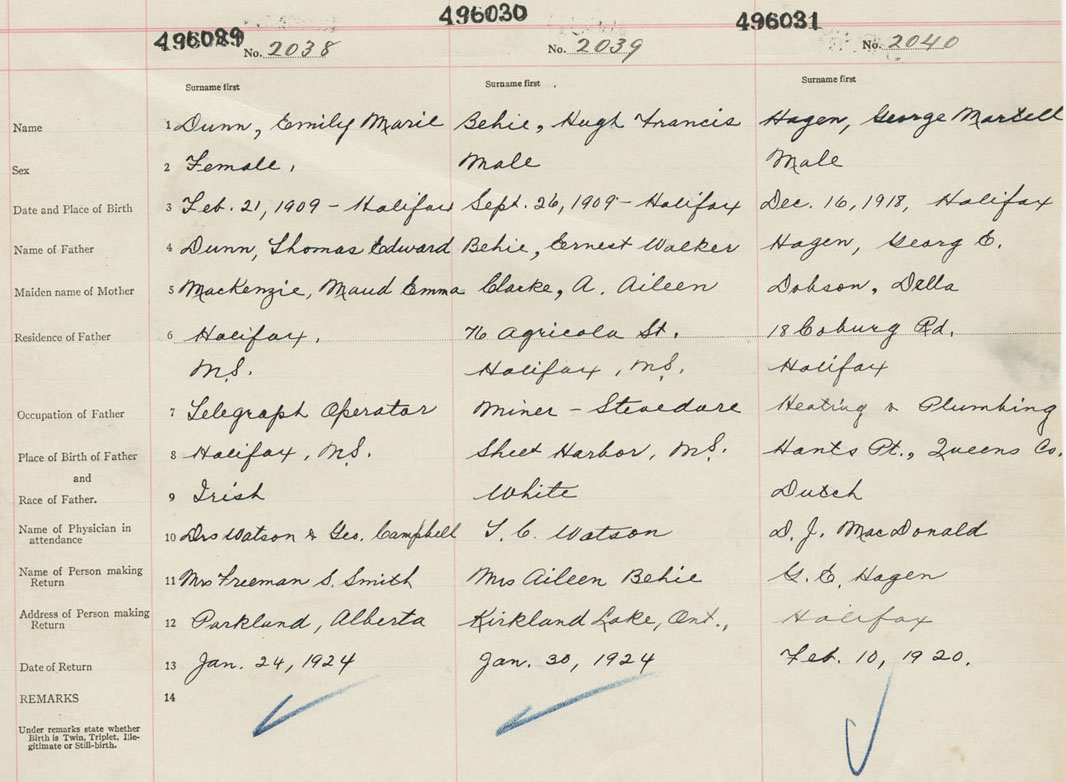 496029 496030 496031
No. 2038 No. 2039 No. 2040
Surname first Surname first Surname first
Name 1 Dunn, Emily Marie Behie, Hugh Francis Hagen, George Martell
Sex 2 Female, Male Male
Date and Place of Birth 3 Feb. 21, 1909 - Halifax Sept. 26, 1909 - Halifax Dec. 16, 1918, Halifax
Name of Father 4 Dunn, Thomas Edward Behie, Ernest Walker Hagen, Georg E.
Maiden name of Mother 5 MacKenzie, Maud Emma Clarke, A. Aileen Dobson, Della
Residence of Father 6 Halifax, 76 Agricola St. 18 Coburg Rd.
N.S. Halifax, N.S. Halifax
Occupation of Father 7 Telegraph Operator Miner - Stevedore Heating & Plumbing
Place of Birth of Father 8 Halifax, N.S. Sheet Harbor, N.S. Hants Pt., Queens Co.
and
Race of Father. 9 Irish White Dutch
Name of Physician in
attendance 10 Drs Watson & Geo. Campbell T. C. Watson D. J. MacDonald
Name of Person making
Return 11 Mrs Freeman S. Smith Mrs Aileen Behie G. E. Hagen
Address of Person making
Return 12 Parkland, Alberta Kirkland Lake, Ont., Halifax
Date of Return 13 Jan. 24, 1924 Jan. 30, 1924 Feb. 10, 1920.
REMARKS 14
Under remarks state whether
Birth is Twin, Triplet, Ille-
gitimate or Still-birth.